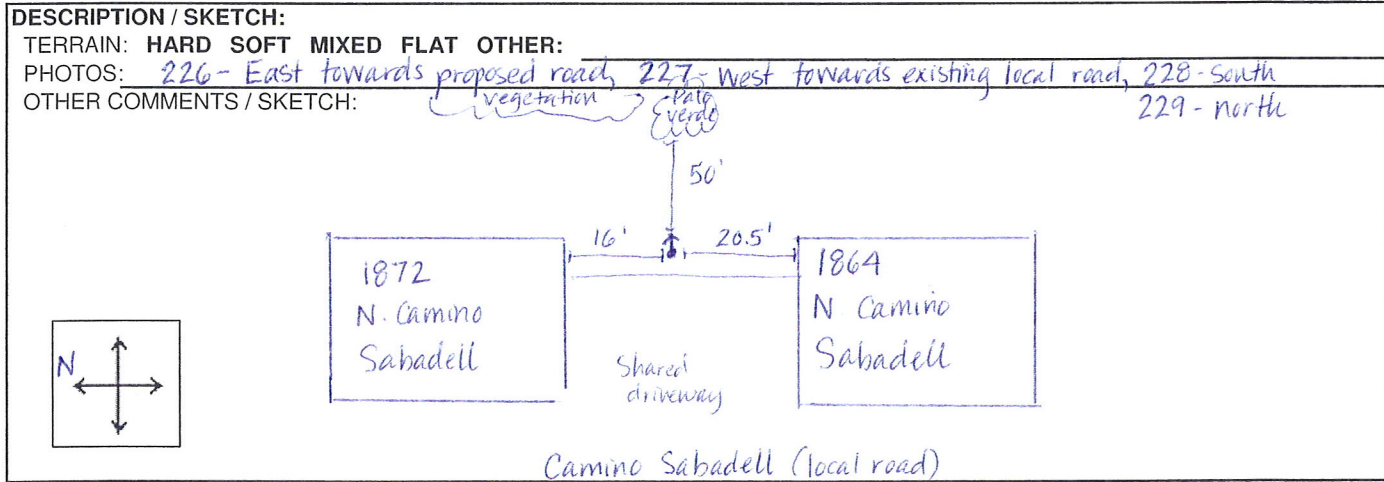 DESCRIPTION / SKETCH:
TERRAIN: HARD SOFT MIXED FLAT OTHER:
PHOTOS: 226 - East towards proposed road, 227 - West towards existing local road, 228 - South
229 - north
OTHER COMMENTS / SKETCH:
vegetation
Palo
verde
50'
16'
20.5'
1872
N. Camino
Sabadell
1864
N Camino
Sabadell
Shared
driveway
N
Camino Sabadell (local road)